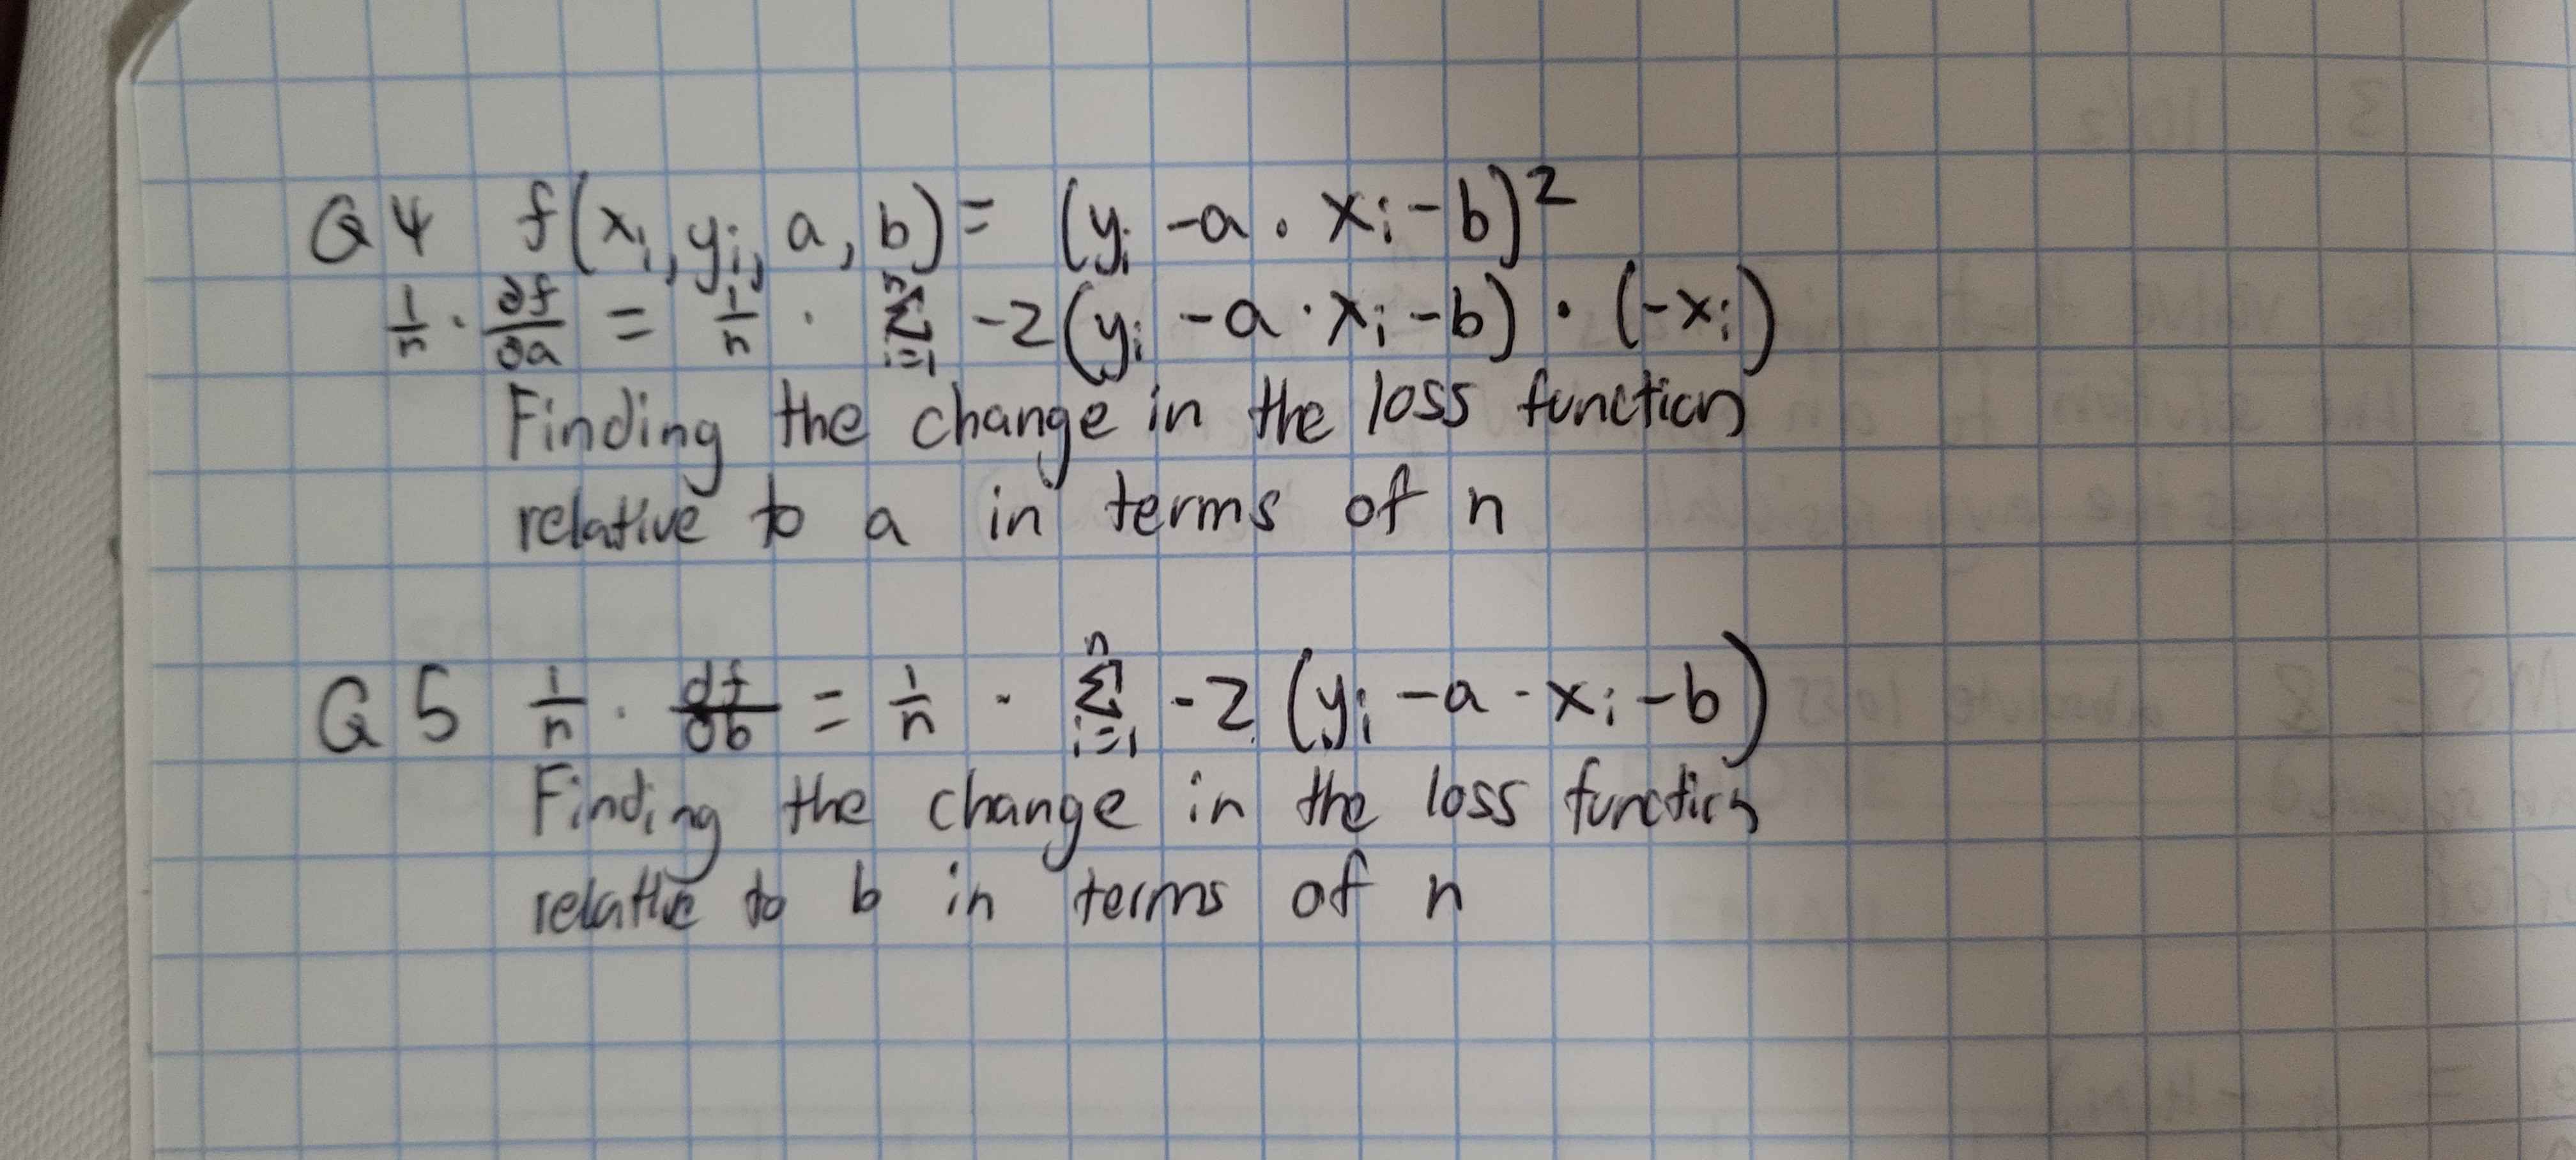 Q4 f(xᵢ, yᵢ, a, b) = (yᵢ - a · xᵢ - b)²
1/n · ∂f/∂a = 1/n · Σⁿᵢ₌₁ -2(yᵢ - a · xᵢ - b) · (-xᵢ)
Finding the change in the loss function
relative to a in terms of n
Q5 1/n · ∂f/∂b = 1/n · Σⁿᵢ₌₁ -2(yᵢ - a · xᵢ - b)
Finding the change in the loss function
relative to b in terms of n